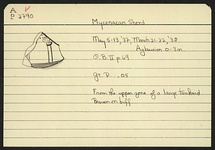 A
P 2790
Mycenaean Sherd
May 5-13, '37, March 21-22, '38
0-2m.
S.B. II p. 69
Gr. D. .05
From the upper zone of a large
Brown on buff